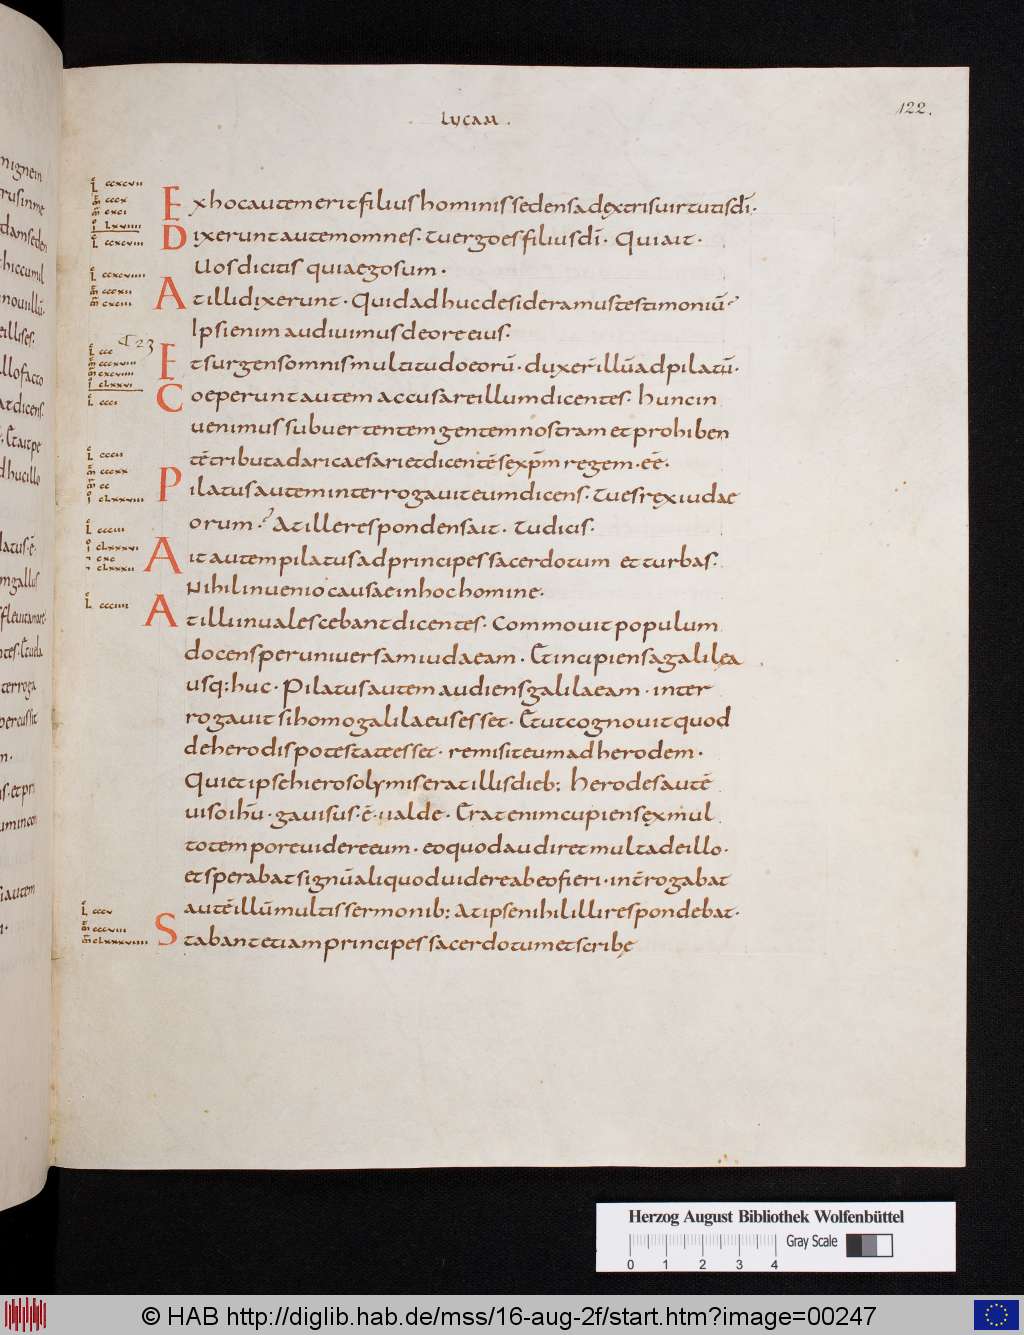 LUCAM.
122.
Ex hoc autem erit filius hominis sedens a dextris uirtutis dī.
Dixerunt autem omnes. Tu ergo es filius dī. Qui ait.
Uos dicitis quia ego sum.
At illi dixerunt. Quid adhuc desideramus testimoniū?
Ipsi enim audiuimus de ore eius.
C 23
Et surgens omnis multitudo eorū. duxer̄ illū ad pilatū.
Coeperunt autem accusare illum dicentes. hunc in
uenimus subuertentem gentem nostram et prohiben
tē tributa dari caesari et dicentē se xp̄m regem. eē.
Pilatus autem interrogauit eum dicens. Tu es rex iudae
orum? At ille respondens ait. Tu dicis.
Ait autem pilatus ad principes sacerdotum et turbas.
Nihil inuenio causae in hoc homine.
At illi inualescebant dicentes. Commouit populum
docens per uniuersam iudaeam. Et incipiens a galilea
usq: huc. Pilatus autem audiens galilaeam. inter
rogauit si homo galilaeus esset. Et ut cognouit quod
de herodis potestate esset. remisit eum ad herodem.
Qui et ipse hierosolymis erat illis dieb; herodes autē
uiso ihū. gauisus. ē. ualde. Erat enim cupiens ex mul
to tempore uidere eum. eo quod audiret multa de illo.
et sperabat signū aliquod uidere ab eo fieri. intērogabat
autē illū multis sermonib; At ipse nihil illi respondebat.
Stabant etiam principes sacerdotum et scribę
L ccxcvii
m̄ cccx
m̄ cxci
I Lxviiii
L ccxcviii
L ccxcviiii
m̄ cccxii
m̄ cxcii
L ccc
m̄ cccxviii
m̄ cxcviiii
I cLxxvi
L ccci
L cccii
m̄ cccxx
m̄ cc
I cLxxviii
L ccciii
I cLxxxvi
cxc
cLxxxii
L ccciiii
L cccv
m̄ cccviii
m̄ cLxxxviiii
Herzog August Bibliothek Wolfenbüttel
Gray Scale
0 1 2 3 4
© HAB http://diglib.hab.de/mss/16-aug-2f/start.htm?image=00247